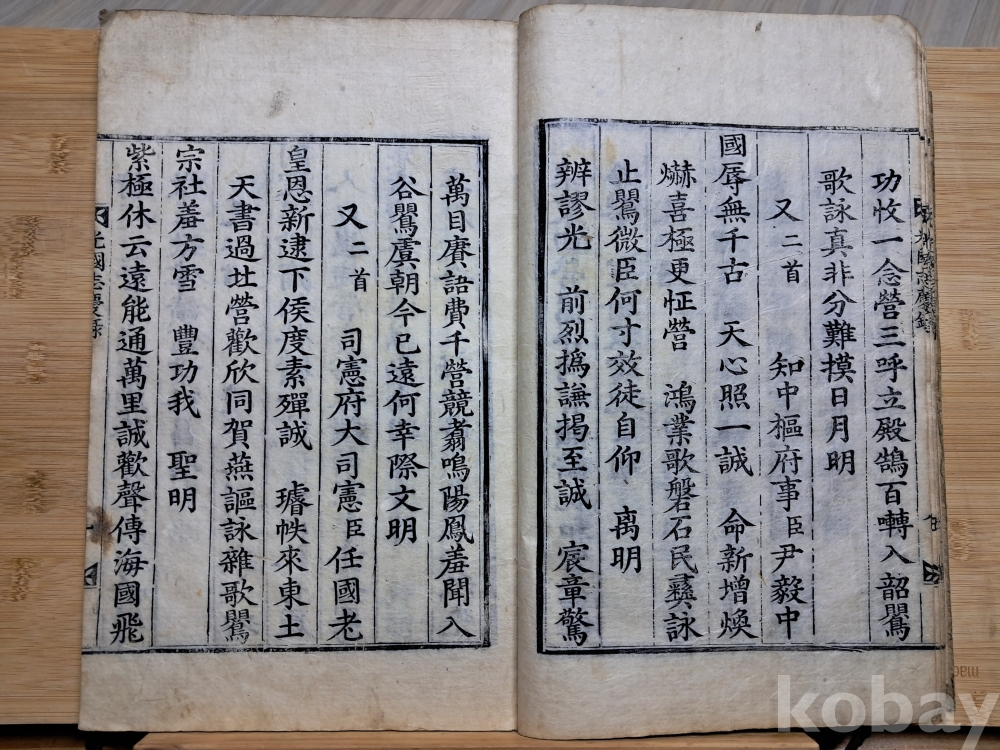 功忺一念營三呼立殿鵠百囀入韶鸎
歌詠真非分難摸日月明
又二首 知中樞府事臣尹毅中
國辱無千古 天心照一誠 命新增煥
爀喜極更怔營 鴻業歌磐石民彛詠
止鸎微臣何寸效徒自仰 离明
辨謬光 前烈撝謙揭至誠 宸章驚
萬目賡語費千營競翥鳴陽鳳羞聞入
谷鸎虞朝今已遠何幸際文明
又二首 司憲府大司憲臣任國老
皇恩新逮下侯度素殫誠 璿帙來東土
天書過𡉄營歡欣同賀燕謳詠雜歌鸎
宗社羞方雪 豐功我 聖明
紫極休云遠能通萬里誠歡聲傳海國飛
光國志慶錄
kobay